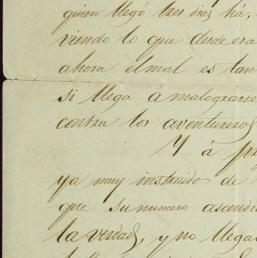 quien llegó tres dias há,
viendo lo que desde era
ahora el mal es tan
si llega á malograrse
contra los aventureros
Y á
ya muy instruido de
que su numero ascend
la verdad, y no llega